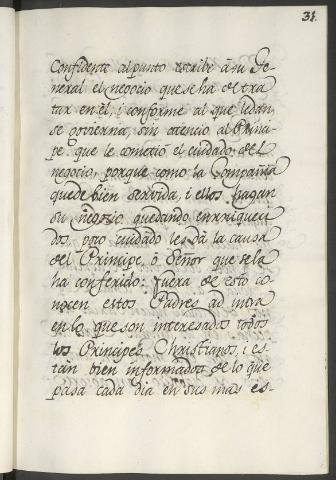 31.
Confidente al punto escribe à su Ge-
neral el negocio que se ha de tra
tar en èl, i conforme al que le dan
se govierna, sin atencio al Prinçi-
pe que le cometiò el cuidado del
negocio, porque como la Compañia
quede bien servida, i ellos hagan
su negozio quedando enrriqueci
dos, poco cuidado les dà la causa
del Principe, ò Señor que se la
ha conferido: fuera de esto co-
nocen estos Padres ad intra
en lo que son interesados todos
los Principes Christianos, i es-
tàn bien informados de lo que
pasa cada dia en sus mas es-